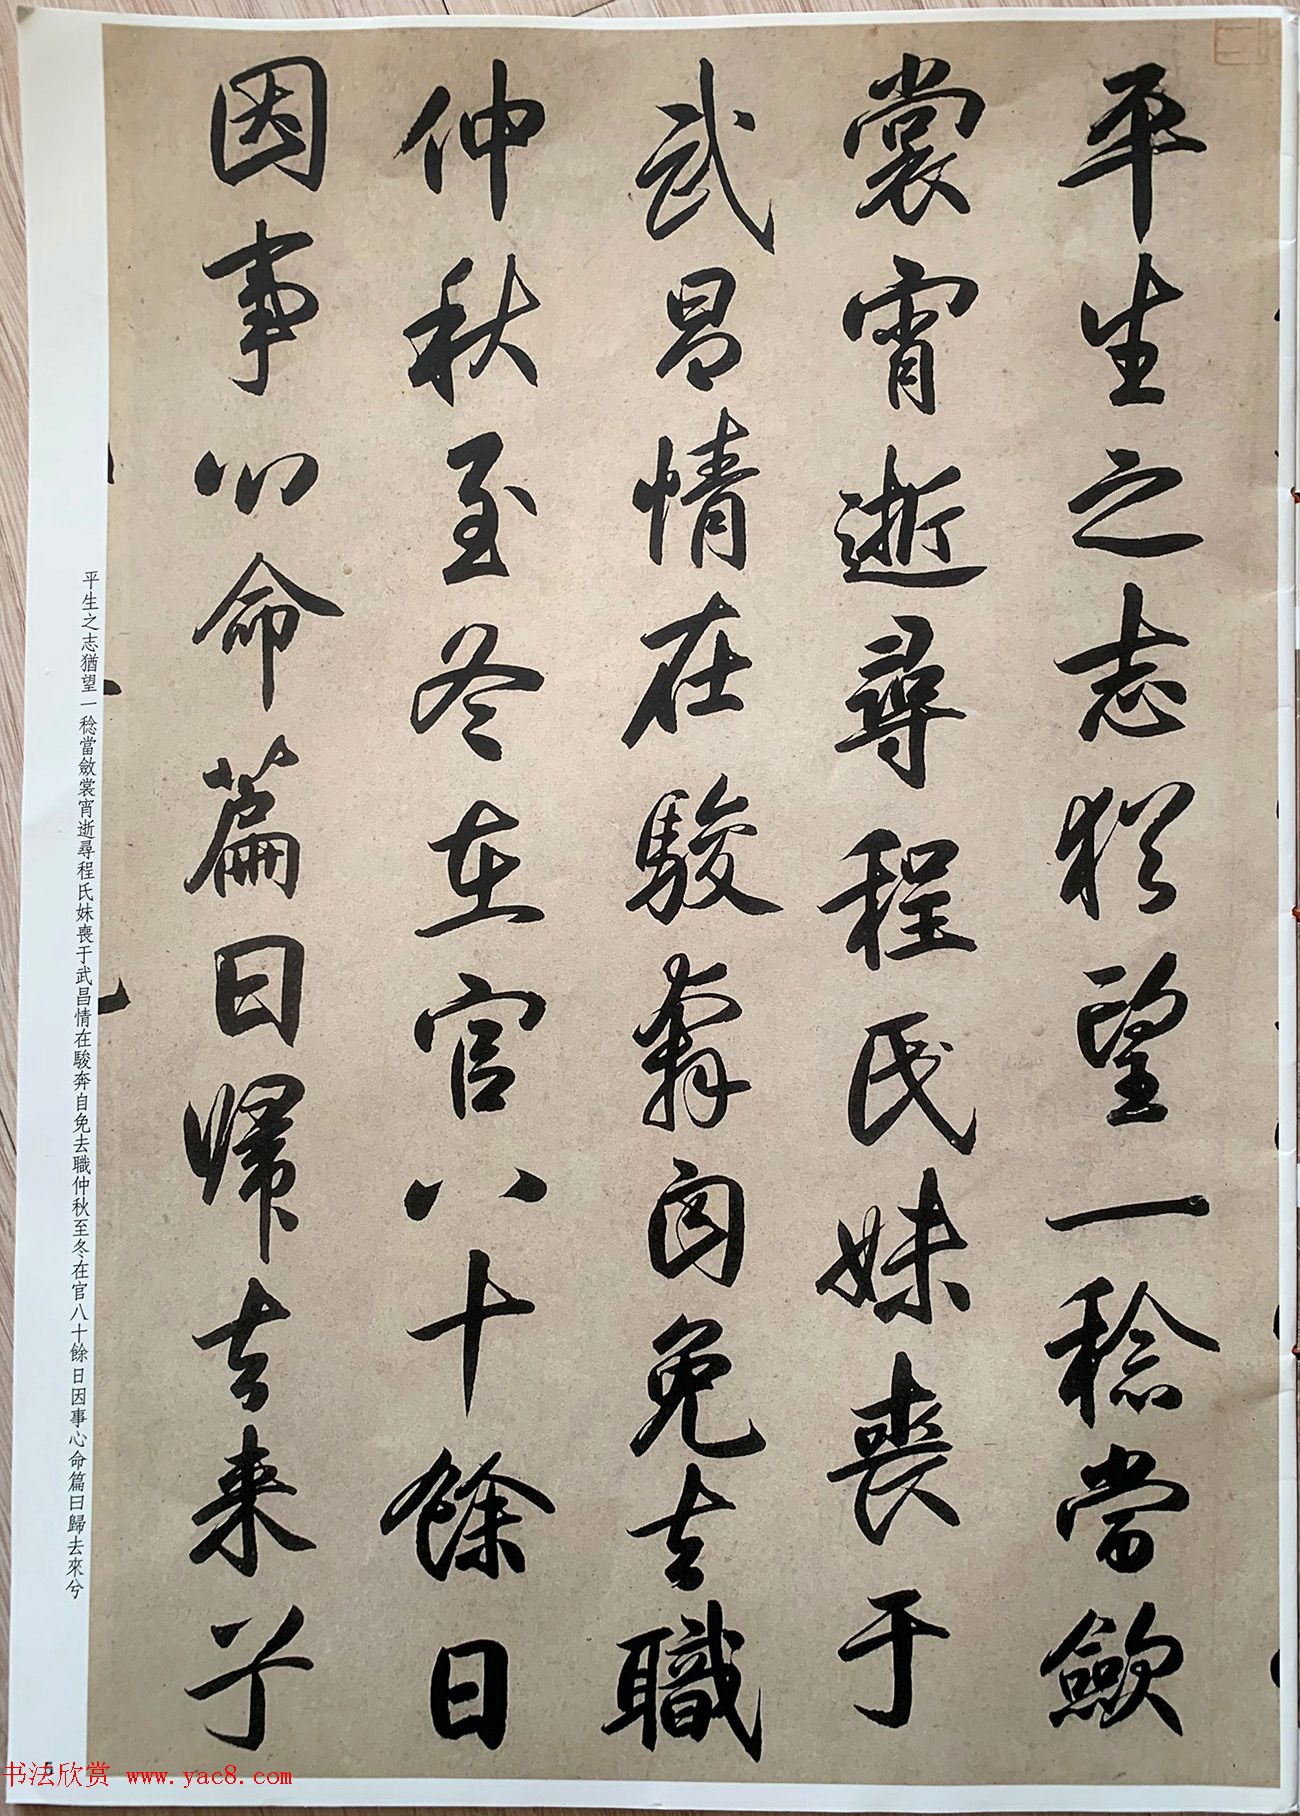 平生之志猶望一稔當斂
裳宵逝尋程氏妹喪于
武昌情在駿奔自免去職
仲秋至冬在官八十餘日
因事心命篇曰歸去来兮
平生之志猶望一稔當斂裳宵逝尋程氏妹喪于武昌情在駿奔自免去職仲秋至冬在官八十餘日因事心命篇曰歸去來兮
5
书法欣赏 www.yac8.com